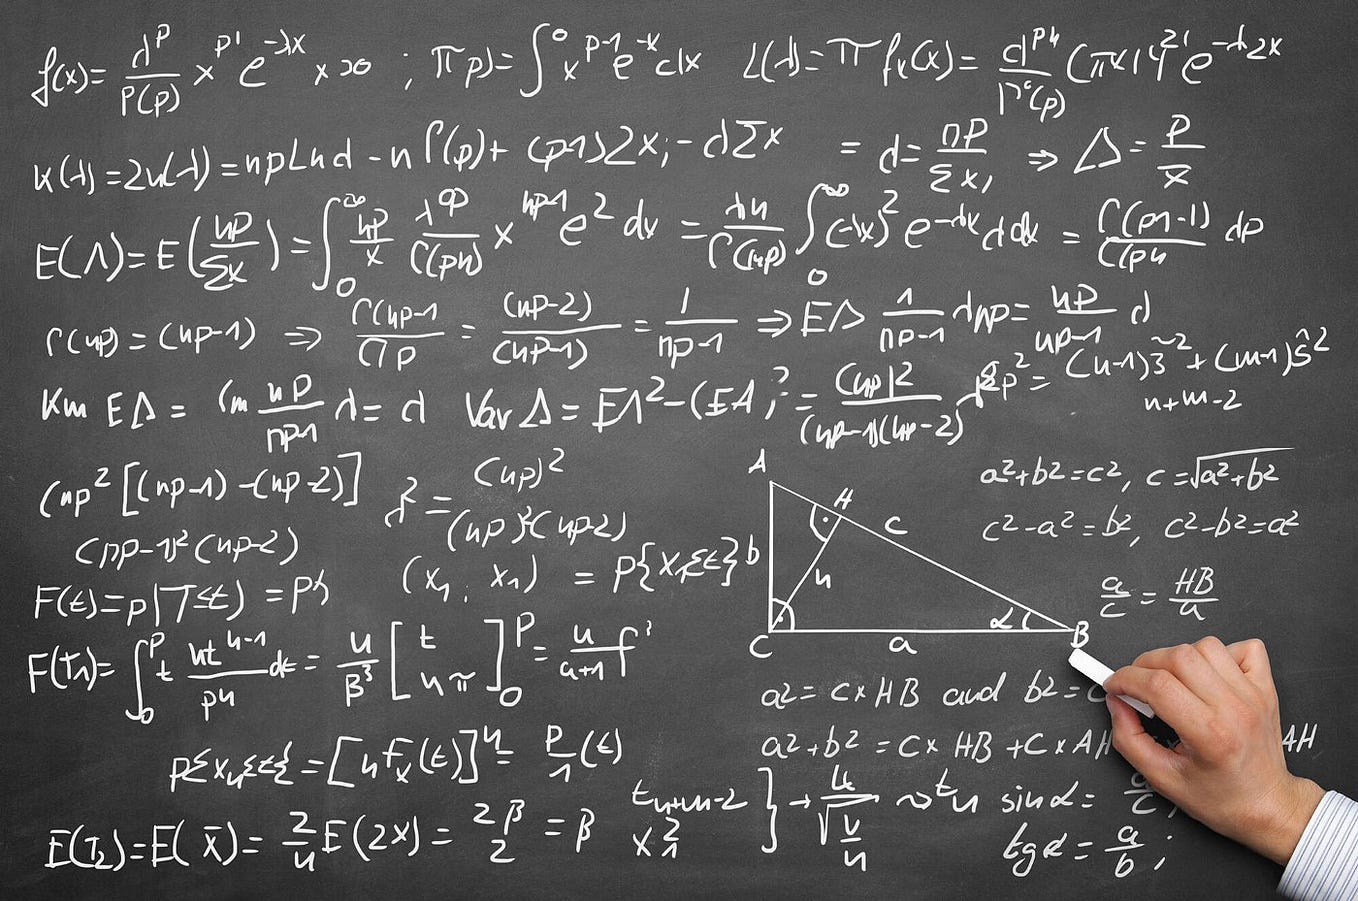 f(x)= d^p/Γ(p) x^p' e^-λx x>0 ; π p)= ∫^0 x^p-1 e^-x dx L(λ)= π f_x(x)= d^pn/Γ^c(p) (πx1 4^2' e^-λ2x
K(λ)=2u(λ)= np Ln d - n Γ(p)+ (p1)2x; - dΣx = d= np/Σx, ⇒ Δ= p/x
E(Λ)= E(np/Σx)= ∫_0^∞ np/x λ^φ/Γ(pn) x^np-1 e^2 dx = λn/Γ(np) ∫_0^∞ (-λx)^2 e^-λx d dx = Γ(pn-1)/Γ(pn dp
Γ(np)=(np-1) ⇒ Γ(np-1/Γp = (np-2)/(np-1) = 1/np-1 ⇒ EΔ 1/np-1 λnp= np/np-1 d
Km EΔ= lm np/np-1 λ= d Var Δ= EΛ^2-(EA)^2= (np)^2/(np-1)(np-2)
Sp^2= (n-1)s^2+(m-1)ŝ^2/n+m-2
(np^2[(np-1)-(np-2)]/(np-1)^2(np-2) λ^2= (np)^2/(np)^2(np-2)
F(t)=p|T≤t) =P (x_1, x_1) = P{x_1≤t}
F(T_1)= ∫_0^P t nt^n-1/pn dt= n/β^3 [t n π]_0^P= n/n+1 f
p≤x_n≤t}=[nF_x(t)]^n= P/1(t)
E(T_2)=E(x̄)= 2/n E(2x)= 2β/2 =β t_n+m-2 x^2_1 } → u/√v/n ~t_n
A H c b h C a α B
a²+b²=c², c=√a²+b²
c²-a²=b², c²-b²=a²
a/c = HB/a
a²= C×HB and b²=C
a²+b²=C×HB+C×AH AH
sinα= a/c;
tgα= a/b;